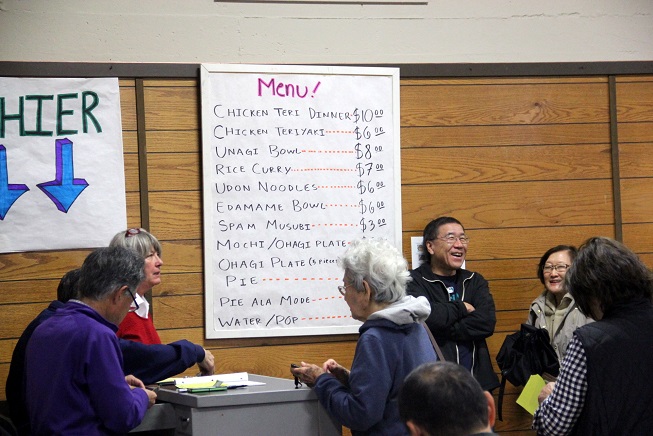 HIER
Menu!
CHICKEN TERI DINNER $10.00
CHICKEN TERIYAKI $6.00
UNAGI BOWL $8.00
RICE CURRY $7.00
UDON NOODLES $6.00
EDAMAME BOWL $6.00
SPAM MUSUBI $3.00
MOCHI/OHAGI PLATE
OHAGI PLATE (3 PIECE)
PIE
PIE ALA MODE
WATER/POP